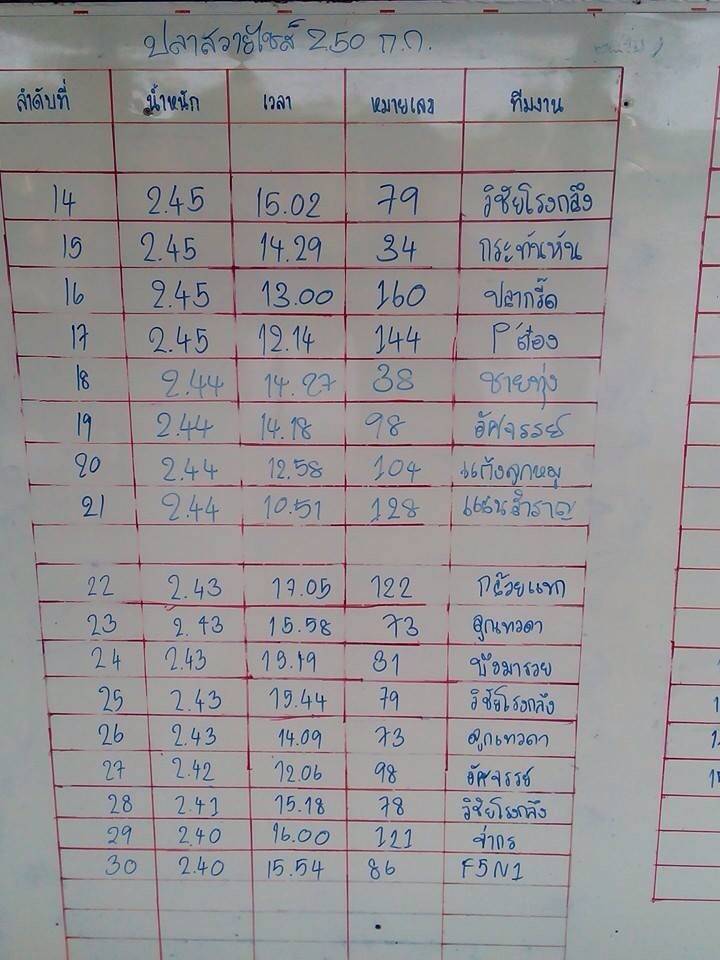 ปลาสวายไซส์ 2.50 ก.ก.
ลำดับที่ น้ำหนัก เวลา หมายเลข ทีมงาน
14 2.45 15.02 79 วิชัยโรงกลึง
15 2.45 14.29 34 กระทันหัน
16 2.45 13.00 160 ปลากรี๊ด
17 2.45 12.14 144 P'ต๋อง
18 2.44 14.27 38 ชายทุ่ง
19 2.44 14.18 98 อัศจรรย์
20 2.44 12.58 104 แก๊งลูกหมู
21 2.44 10.51 128 แสนสำราญ
22 2.43 17.05 122 กล้วยแขก
23 2.43 15.58 73 ลูกเทวดา
24 2.43 15.19 81 บึงมารวย
25 2.43 15.44 79 วิชัยโรงกลึง
26 2.43 14.09 73 ลูกเทวดา
27 2.42 12.06 98 อัศจรรย์
28 2.41 15.18 78 วิชัยโรงกลึง
29 2.40 16.00 121 จ่ากร
30 2.40 15.54 86 F5N1